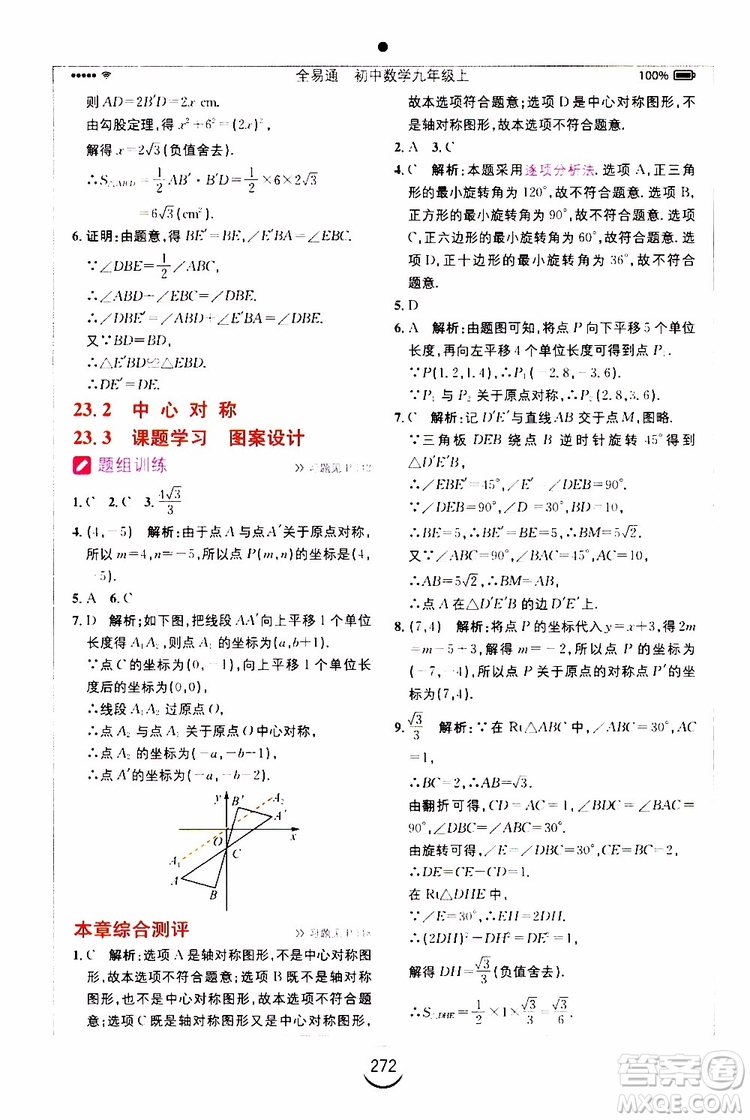 全易通 初中数学九年级上
100%
则 AD=2B′D=2x cm.
由勾股定理,得 x²+6²=(2x)²,
解得 x=2√3(负值舍去).
∴S△ABD=1/2 AB′·B′D=1/2×6×2√3
=6√3(cm²).
6. 证明:由题意,得 BE′=BE,∠E′BA=∠EBC.
∵∠DBE=1/2∠ABC,
∴∠ABD+∠EBC=∠DBE.
又∵∠DBE′=∠DBE.
∴△E′BD≌△EBD.
∴DE′=DE.
23.2 中心对称
23.3 课题学习 图案设计
题组训练
1. C 2. C 3. 4√3/3
4. (4,-5) 解析:由于点A与点A′关于原点对称,
所以 m=4,n=-5,所以点 P(m,n)的坐标是(4,
-5).
5. A 6. C
7. D 解析:如下图,把线段AA′向上平移1个单位
长度,得到 A₁A₂,则A₁A₂过原点O.
∵点C的坐标为(0,-1),向上平移1个单位长
度后的坐标为(0,0),
∴线段 A₁A₂ 过原点 O.
∴点 A₁ 与点 A₂ 关于原点 O 中心对称.
∴点 A₂ 的坐标为(-a,-b-1).
∴点 A′的坐标为(-a,-b-2).
y
B′
A₂
A′
O
x
C
A₁
A
B
本章综合测评
1. C 解析:选项A是轴对称图形,不是中心对称图
形,故本选项不符合题意;选项B既不是轴对称
图形,也不是中心对称图形,故本选项不符合题
意;选项C既是轴对称图形又是中心对称图形,
故本选项符合题意;选项D是中心对称图形,不
是轴对称图形,故本选项不符合题意.
2. A 3. C
4. C 解析:本题采用逐项分析法.选项A,正三角
形的最小旋转角为120°,故不符合题意;选项B,
正方形的最小旋转角为90°,故不符合题意;选项
C,正六边形的最小旋转角为60°,故符合题意;选
项D,正十边形的最小旋转角为36°,故不符合
题意.
5. D
6. A 解析:由题图可知,将点P向下平移5个单位
长度,再向左平移4个单位长度得到点P₁.
∵P(1.2,1.4),∴P₁(-2.8,-3.6).
∵P₁与P₂关于原点对称,∴P₂(2.8,3.6).
7. C 解析:记D′E′与直线AB交于点M,图略.
∵三角板 DEB 绕点 B 逆时针旋转 45°得到
△D′E′B,
∴∠EBE′=45°,∠E′=∠DEB=90°.
∵∠DEB=90°,∠D=30°,∴∠DBE=60°.
∴BE=5,∴BE′=BE=5,∴BM=5√2.
又∵∠ABC=90°,∠A=45°,AC=10,
∴AB=5√2,∴AB=BM.
∴点 A 在△D′E′B的边D′E′上.
8. (7,4) 解析:把点P的坐标代入y=x+3,得2m
=m-5+3,解得m=-2,所以点P的坐标是
(-7,-4),所以点P关于原点的对称点P′的
坐标为(7,4).
9. √3/3 解析:∵在 Rt△ABC 中,∠ABC=30°,AC
=1,
∴BC=2,∴AB=√3.
由翻折可得,CD=AC=1,AB=BD=√3,
∴∠DBC=∠ABC=30°.
由旋转可得,∠E=∠DBC=30°,CE=BC=2,
∴DE=CE-CD=1.
在 Rt△DHE 中,
∵∠E=30°,∴EH=2DH,
∴(2DH)²-DH²=1,
解得 DH=√3/3(负值舍去).
∴S△DHE=1/2×1×√3/3=√3/6.
272
答案圈
MXQE.COM